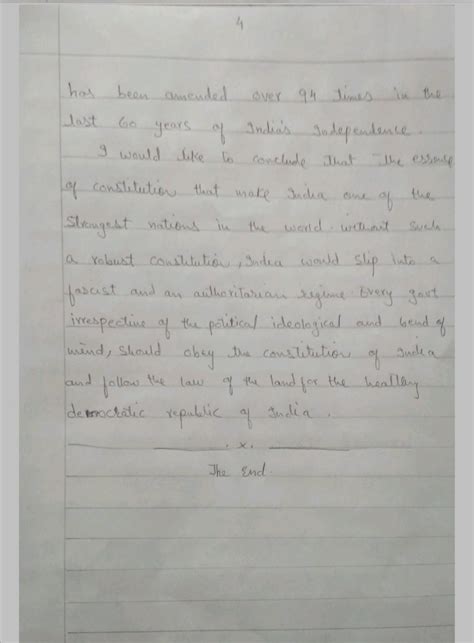 4
has been amended over 94 times in the
last 60 years of India's Independence.
I would like to conclude that the essence
of constitution that make India one of the
strongest nations in the world. without such
a robust constitution, India would slip into a
fascist and an authoritarian regime Every govt
irrespective of the political ideological and bend of
mind, should obey the constitution of India
and follow the law of the land for the healthy
democratic republic of India.
. x.
The End.